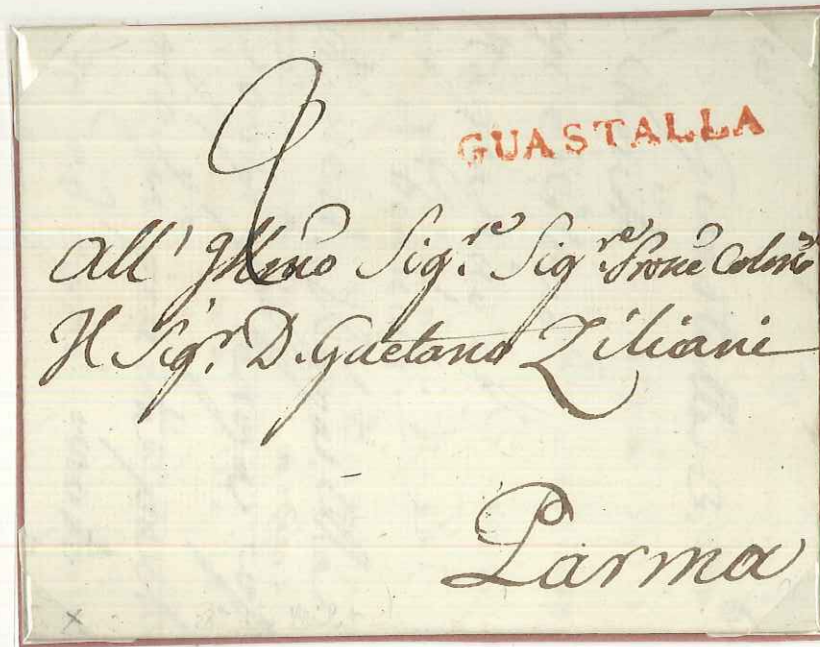 GUASTALLA
All' Illmo Sig.re Sig.re Prone Colmo
Il Sig.r D. Gaetano Ziliani
Parma